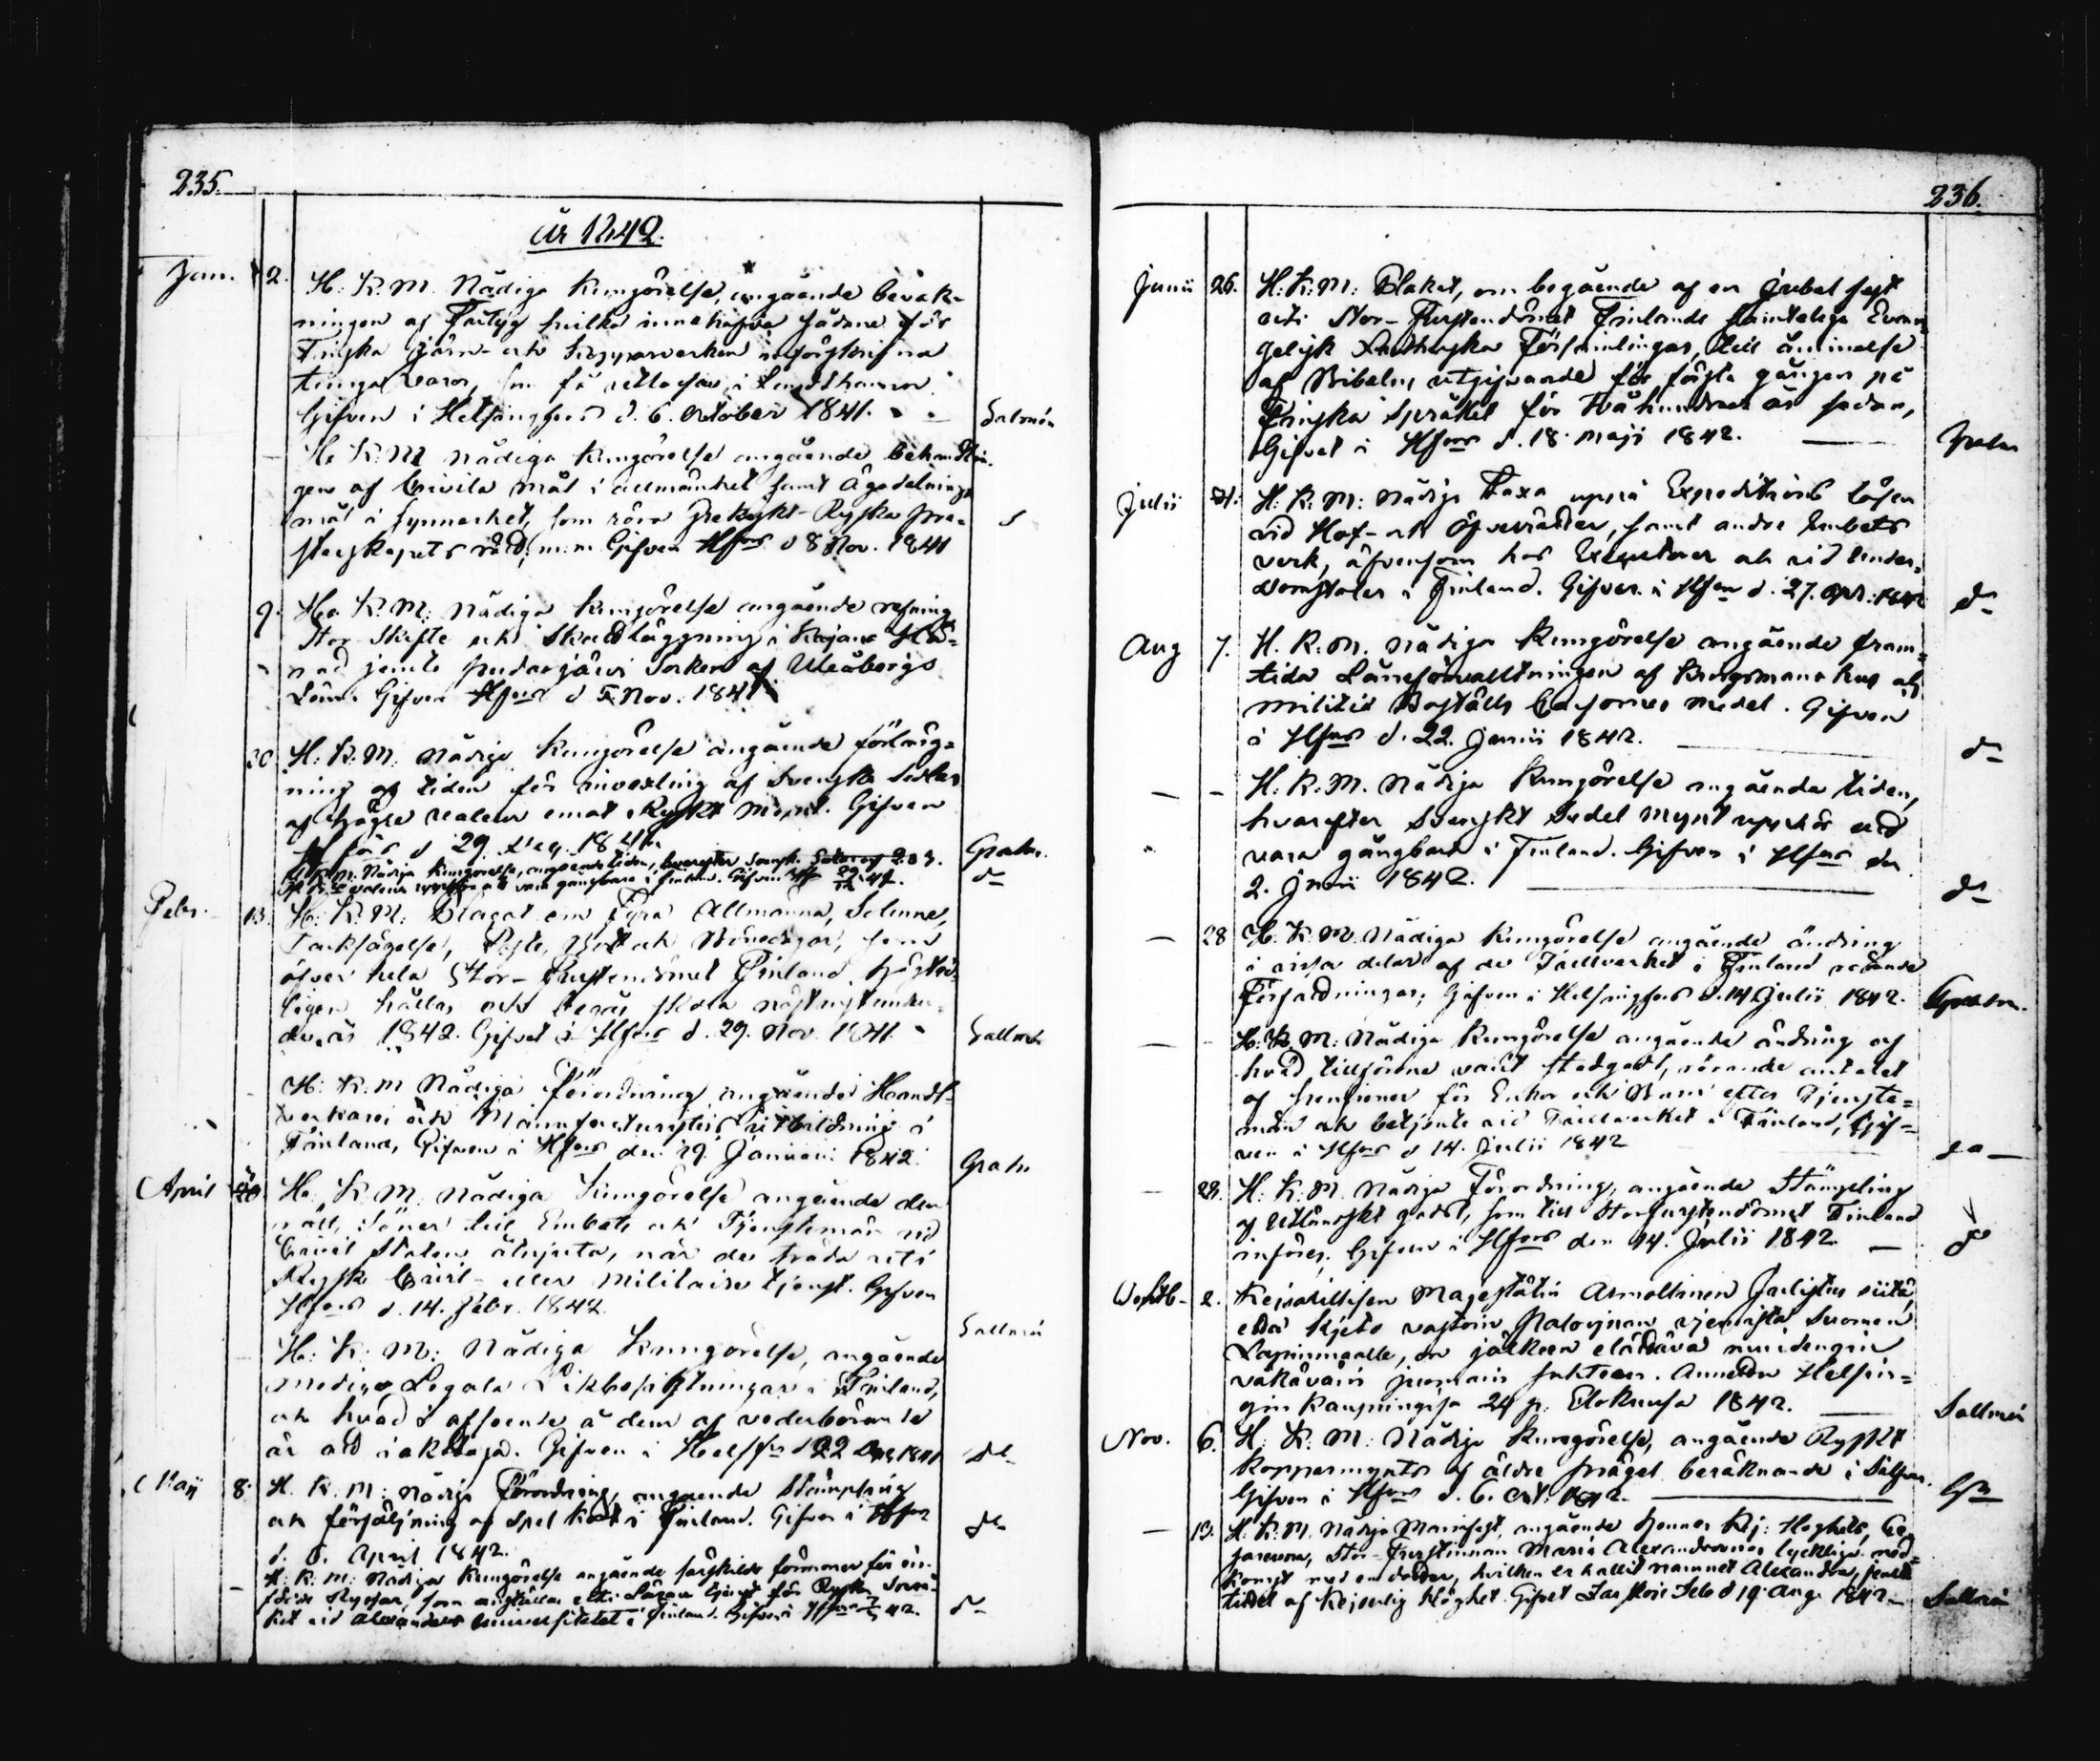 235.
år 1842.
Jan. 2. H: K. M. Nådiga Kungörelse, angående bevak-
ningen af Fartyg hvilka innehafva sådane för
Finska Jern- och Kopparverken
tunga varor, som få
Gifven i Helsingfors d. 6. October 1841. Salmén
H. K. M. nådiga Kungörelse angående behandlin-
gen af Civila mål i allmänhet samt Ägodelnings
mål i synnerhet, som röra Grekiskt-Ryska pre-
sterskapets m.m. Gifven Hfors d 8 Nov. 1841
9. H: K. M: Nådiga Kungörelse angående refning
Stor Skifte och Skattläggning i Kajana Hä-
rad jemte Pudasjärvi Socken af Uleåborgs
Län. Gifven Hfors d Nov. 1841.
30 H: K. M. Nådige Kungörelse angående förläng-
ning af tiden för invexling af Svenska Sedlar
af högre valeur emot Ryskt Mynt. Gifven
Hfors d 29. 1841. Grahn.
H. K. M. Nådiga Kungörelse, angående tiden, hvarefter Svensk. Sedlar af 2 o 3.
valeur upphöra att vara gångbara i Finland. Gifven Hfs 29/12 41. do
Febr. 13. H: K. M: Plagat om Fyra Allmänna, Solenne,
Tacksägelse, Faste, Bot och Bönedagar, som
öfver hela Stor-Furstendömet Finland högtid-
ligen hållas och begås skola nästinstundan-
de år 1842. Gifvet i Hfors d. 29. Nov 1841. Sallmén
H: K. M Nådiga Förordning angående Handt-
verkares och Manufacturisters utbildning i
Finland, Gifven i Hfors den 19. Januari 1842. Grahn
April H: K. M. Nådiga Kungörelse angående den
rätt, Söner till Embets och Tjenstemän vid
Civil Staten åtnjuta, när de träda uti
Rysk Civil- eller Militaire tjenst. Gifven
Hfors d. 14. Febr. 1842.
H: K: M: Nådiga Kungörelse, angående Sallmén
Medico Legala Likbesigtningar i Finland,
och hvad i afseende å dem af vederbörande
är att iakttaga. Gifven i Helsfrs d 22 Dec 1841 do
Maij 8. H. K. M: Nådiga Förordning, angående Stämpling
och försäljning af Spel Kort i Finland. Gifven i Hfors do
d. 6. April 1842.
H. K. M: Nådiga Kungörelse angående särskilda förmoner för in-
födde Ryssar, som anställas uti Lärare tjenst för Ryska Språ-
ket vid Alexanders Universitetet i Finland. Gifven i Hfors 42. do
236.
Junii 26. H: K: M: Plakat, om begående af en Jubel fest
uti Stor-Furstendömet Finlands samtelige Evan-
gelisk Lutherska Församlingar, till åminnelse
af Bibelns utgifvande för första gången på
Finska Språket för tvåhundrade år sedan,
Gifvet i Hfors d. 18. Maji 1842. Grahn
Julii 31. H: K: M: Nådige Taxa uppå Expeditions Lösen
vid Hof- och Öfverrätter, samt andre Embets
verk, äfvensom hos Executorer och vid Under-
domstolar i Finland. Gifven i Hfors d. 27. Apr. 1842 do
Aug 7. H. K. M. Nådiga Kungörelse angående fram-
tida Låneförvalltningen af Krigsmans hus och
Militie Boställs Cassornes medel. Gifven
i Hfors d. 22. Junii 1842. do
H. K. M. Nådiga Kungörelse angående tiden,
hvarefter Svenskt Sedel Mynt upphör att
vara gångbart i Finland. Gifven i Hfors den
2. Junii 1842. do
28 H. K. M. Nådiga Kungörelse angående ändring
i vissa delar af de Tullverket i Finland rörande
Författningar; Gifven i Helsingfors d. 14. Julii 1842. Grahn.
H: K. M: Nådiga Kungörelse angående ändring af
hvad tillförene varit stadgadt, rörande antalet
af pensioner för Enkor och Barn efter Tjenste-
män och betjente vid Tullverket i Finland, Gif-
ven i Hfors d 14. Julii 1842 do
H: K: M. Nådiga Förordning, angående Stämpling
af Utländskt gods, som till Storfurstendömet Finland
införes. Gifven i Hfors den 14. Julii 1842. do
Octb. 2. Keisarillisen Majestätin Armollinen Julistus siitä,
että kielto wastoin Palowiinan wiemistä Suomen
Lapinmaalle, on jälkeen elättäwä muidengin
wäkewäin juomain suhteen. Annettu Helsin-
gin Kaupungisa 24 p. Elokuusa 1842. Sallmén
Nov. 6. H: K: M: Nådige Kungörelse, angående Ryskt
Kopparmynts af äldre prägel beräknande i Silfver.
Gifven i Hfors d. 6. Oct: 1842. Gn
13. H: K. M. Nådiga Manifest, angående Hennes Kejs: Höghets, Ce-
sarevnas, Stor-Furstinnan Maria Alexandrovnas lyckliga ned-
komst med en dotter, hvilken erhållit namnet Alexandra, jemte
titel af Kejserlig Höghet. Gifvet Zarskoie Selo d 19 Aug. 1842. Sallmén